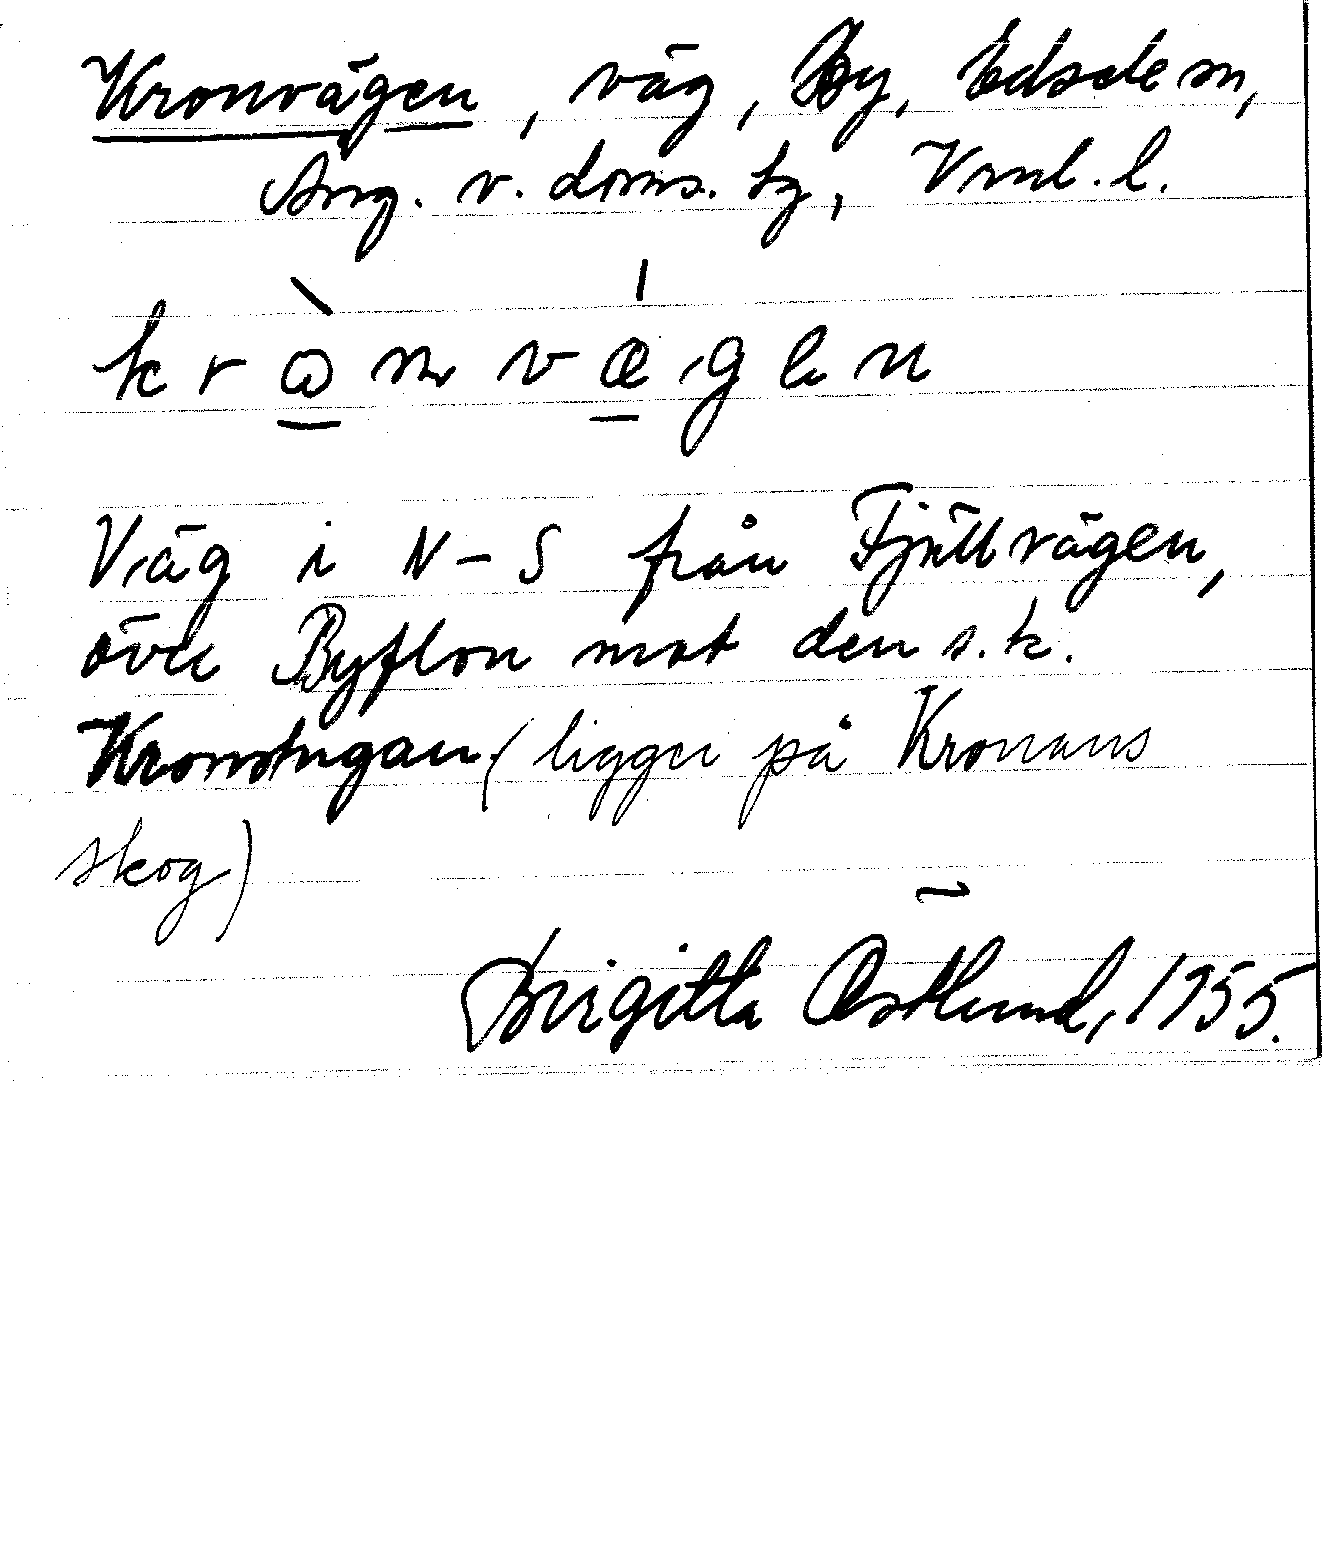 Kronvägen, väg, By, Edsdem sn,
Ång. v. doms. tg, Vrml. l.
Väg i N-S från Fjällvägen,
över Byflon mot den s.k.
Kronstugan (ligger på Kronans
skog)
Birgitta Östlund, 1955.